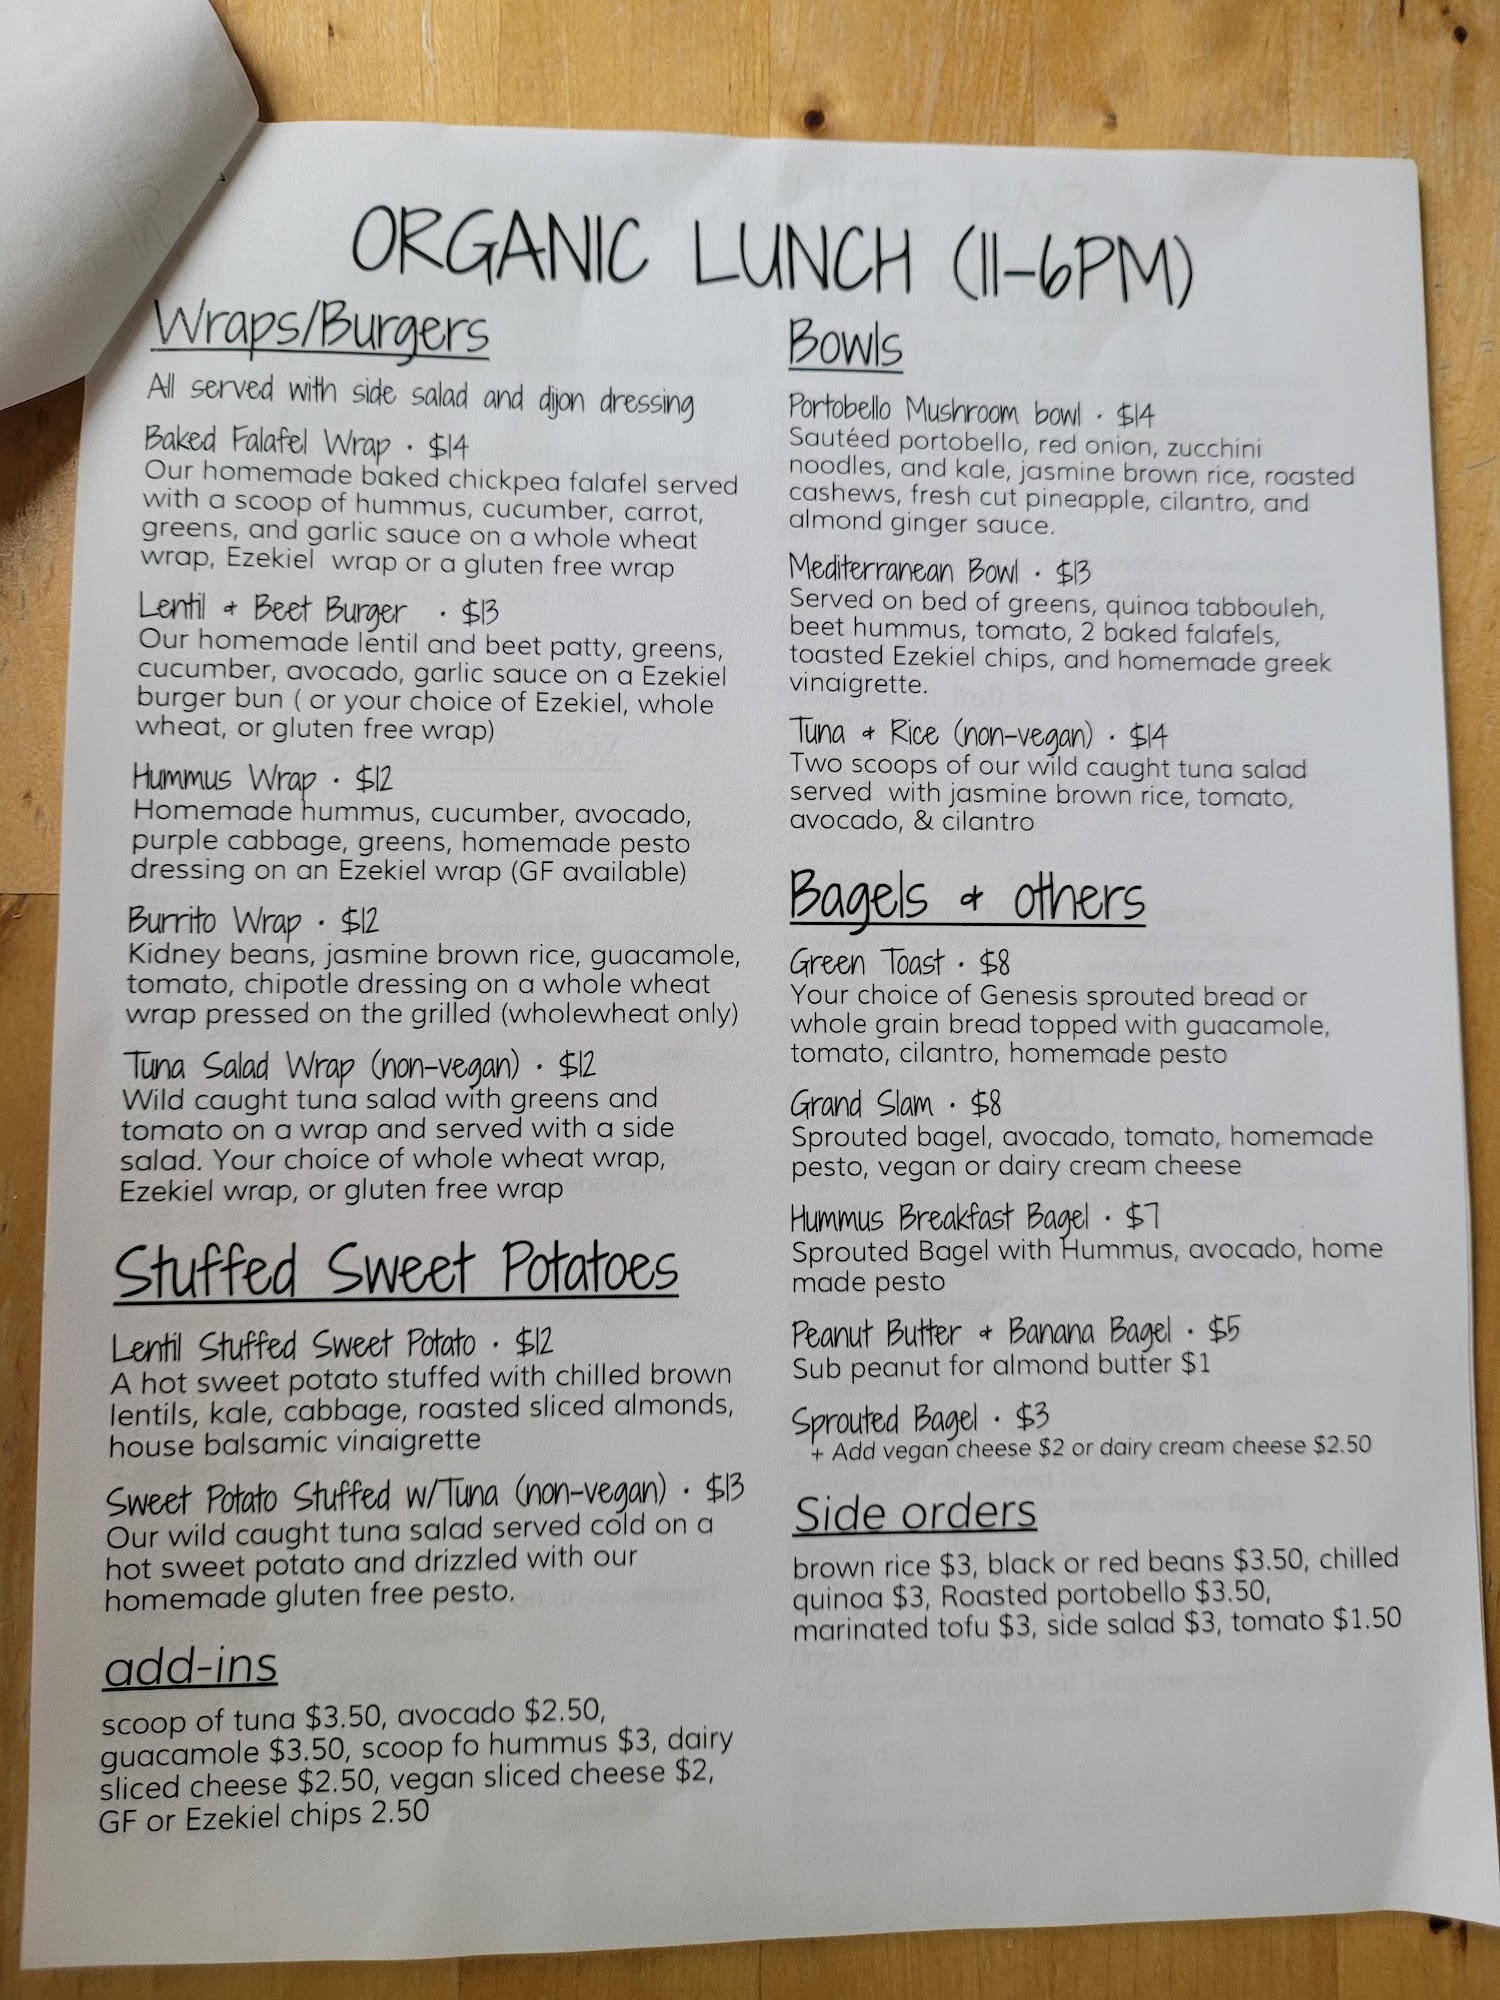 ORGANIC LUNCH (11-6PM)
Wraps/Burgers
All served with side salad and dijon dressing
Baked Falafel Wrap · $14
Our homemade baked chickpea falafel served
with a scoop of hummus, cucumber, carrot,
greens, and garlic sauce on a whole wheat
wrap, Ezekiel wrap or a gluten free wrap
Lentil + Beet Burger · $13
Our homemade lentil and beet patty, greens,
cucumber, avocado, garlic sauce on a Ezekiel
burger bun ( or your choice of Ezekiel, whole
wheat, or gluten free wrap)
Hummus Wrap · $12
Homemade hummus, cucumber, avocado,
purple cabbage, greens, homemade pesto
dressing on an Ezekiel wrap (GF available)
Burrito Wrap · $12
Kidney beans, jasmine brown rice, guacamole,
tomato, chipotle dressing on a whole wheat
wrap pressed on the grilled (wholewheat only)
Tuna Salad Wrap (non-vegan) · $12
Wild caught tuna salad with greens and
tomato on a wrap and served with a side
salad. Your choice of whole wheat wrap,
Ezekiel wrap, or gluten free wrap
Stuffed Sweet Potatoes
Lentil Stuffed Sweet Potato · $12
A hot sweet potato stuffed with chilled brown
lentils, kale, cabbage, roasted sliced almonds,
house balsamic vinaigrette
Sweet Potato Stuffed w/Tuna (non-vegan) · $13
Our wild caught tuna salad served cold on a
hot sweet potato and drizzled with our
homemade gluten free pesto.
add-ins
scoop of tuna $3.50, avocado $2.50,
guacamole $3.50, scoop fo hummus $3, dairy
sliced cheese $2.50, vegan sliced cheese $2,
GF or Ezekiel chips 2.50
Bowls
Portobello Mushroom bowl · $14
Sautéed portobello, red onion, zucchini
noodles, and kale, jasmine brown rice, roasted
cashews, fresh cut pineapple, cilantro, and
almond ginger sauce.
Mediterranean Bowl · $13
Served on bed of greens, quinoa tabbouleh,
beet hummus, tomato, 2 baked falafels,
toasted Ezekiel chips, and homemade greek
vinaigrette.
Tuna + Rice (non-vegan) · $14
Two scoops of our wild caught tuna salad
served with jasmine brown rice, tomato,
avocado, & cilantro
Bagels + others
Green Toast · $8
Your choice of Genesis sprouted bread or
whole grain bread topped with guacamole,
tomato, cilantro, homemade pesto
Grand Slam · $8
Sprouted bagel, avocado, tomato, homemade
pesto, vegan or dairy cream cheese
Hummus Breakfast Bagel · $7
Sprouted Bagel with Hummus, avocado, home
made pesto
Peanut Butter + Banana Bagel · $5
Sub peanut for almond butter $1
Sprouted Bagel · $3
+ Add vegan cheese $2 or dairy cream cheese $2.50
Side orders
brown rice $3, black or red beans $3.50, chilled
quinoa $3, Roasted portobello $3.50,
marinated tofu $3, side salad $3, tomato $1.50